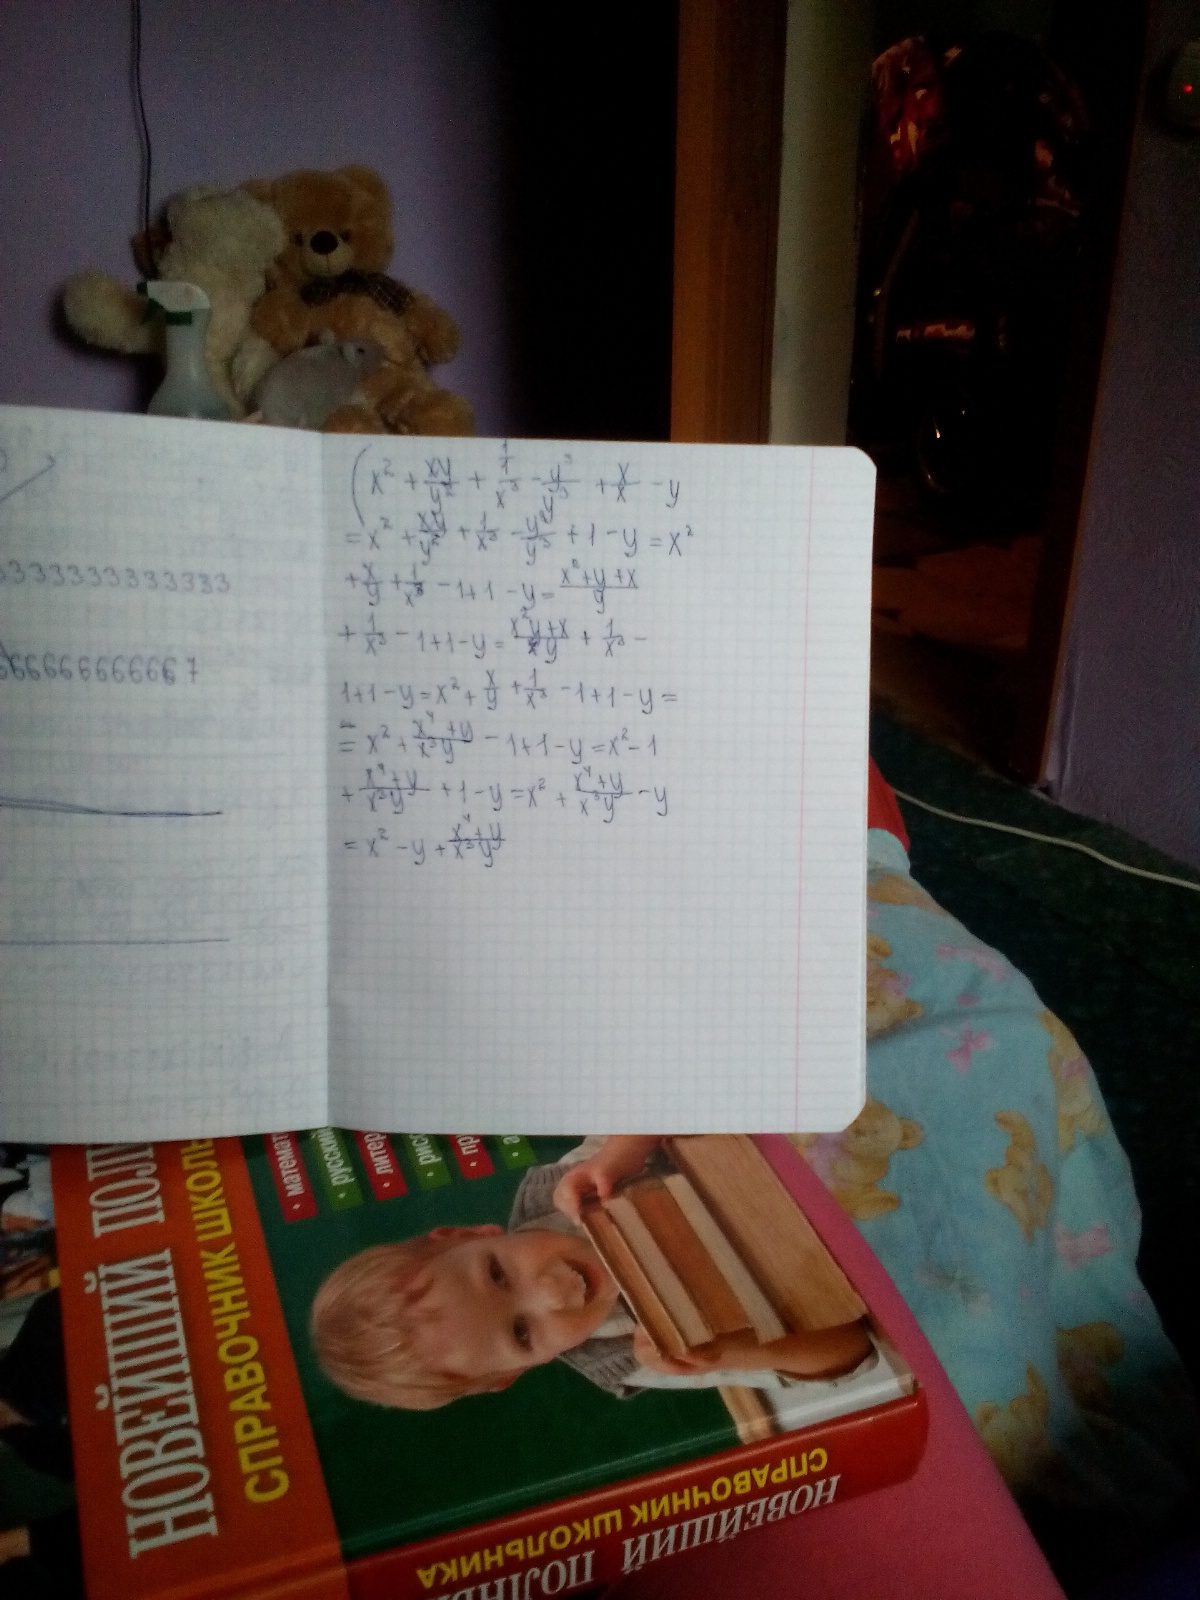 3333333333333
66666666666667
(x² + xy/y² + 1/1/x³ - y³/y³ + x/x - y
= x² + xy/y² + 1/x³ - y³/y³ + 1 - y = x²
+ x/y + 1/x³ - 1 + 1 - y = x²+y+x/y
+ 1/x³ - 1 + 1 - y = x²y+x/y + 1/x³ -
1 + 1 - y = x² + x/y + 1/x³ - 1 + 1 - y =
= x² + x⁴+y/x³y - 1 + 1 - y = x² - 1
+ x⁴+y/x³y + 1 - y = x² + x⁴+y/x³y - y
= x² - y + x⁴+y/x³y
НОВЕЙШИЙ ПОЛН
СПРАВОЧНИК ШКОЛЬ
• математ
• русский
• литер
• рис
• пр
НОВЕЙШИЙ ПОЛНЫ
СПРАВОЧНИК ШКОЛЬНИКА